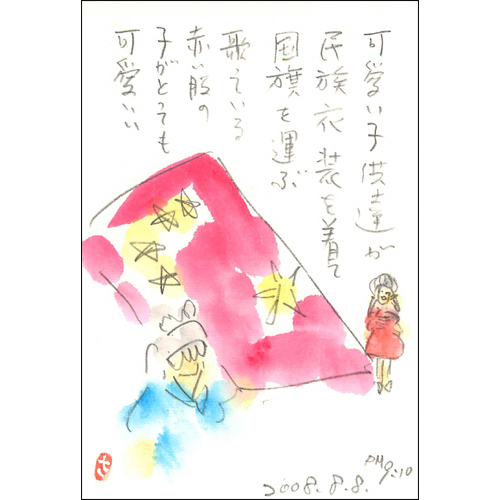 可愛い子供達が
民族衣装を着て
国旗を運ぶ
歌っている
赤い服の
子がとっても
可愛いい
PM9:10
2008.8.8.
さ